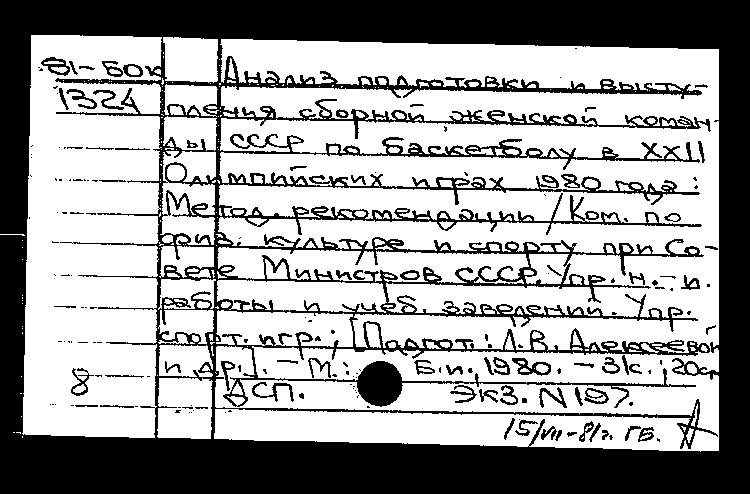 81-БОК Анализ подготовки и высту-
1324 пления сборной женской коман-
ды СССР по баскетболу в XXII
Олимпийских играх 1980 года:
Метод. рекомендации / Ком. по
физ. культуре и спорту при Со-
вете Министров СССР. Упр. н.-и.
работы и учеб. заведений. Упр.
спорт. игр.; [Подгот.: Л.В. Алексеевой
и др.]. - М.: Б.и., 1980. - 31с.; 20см
8 ДСП. Экз. N 197.
15/VII-81г. ГБ.